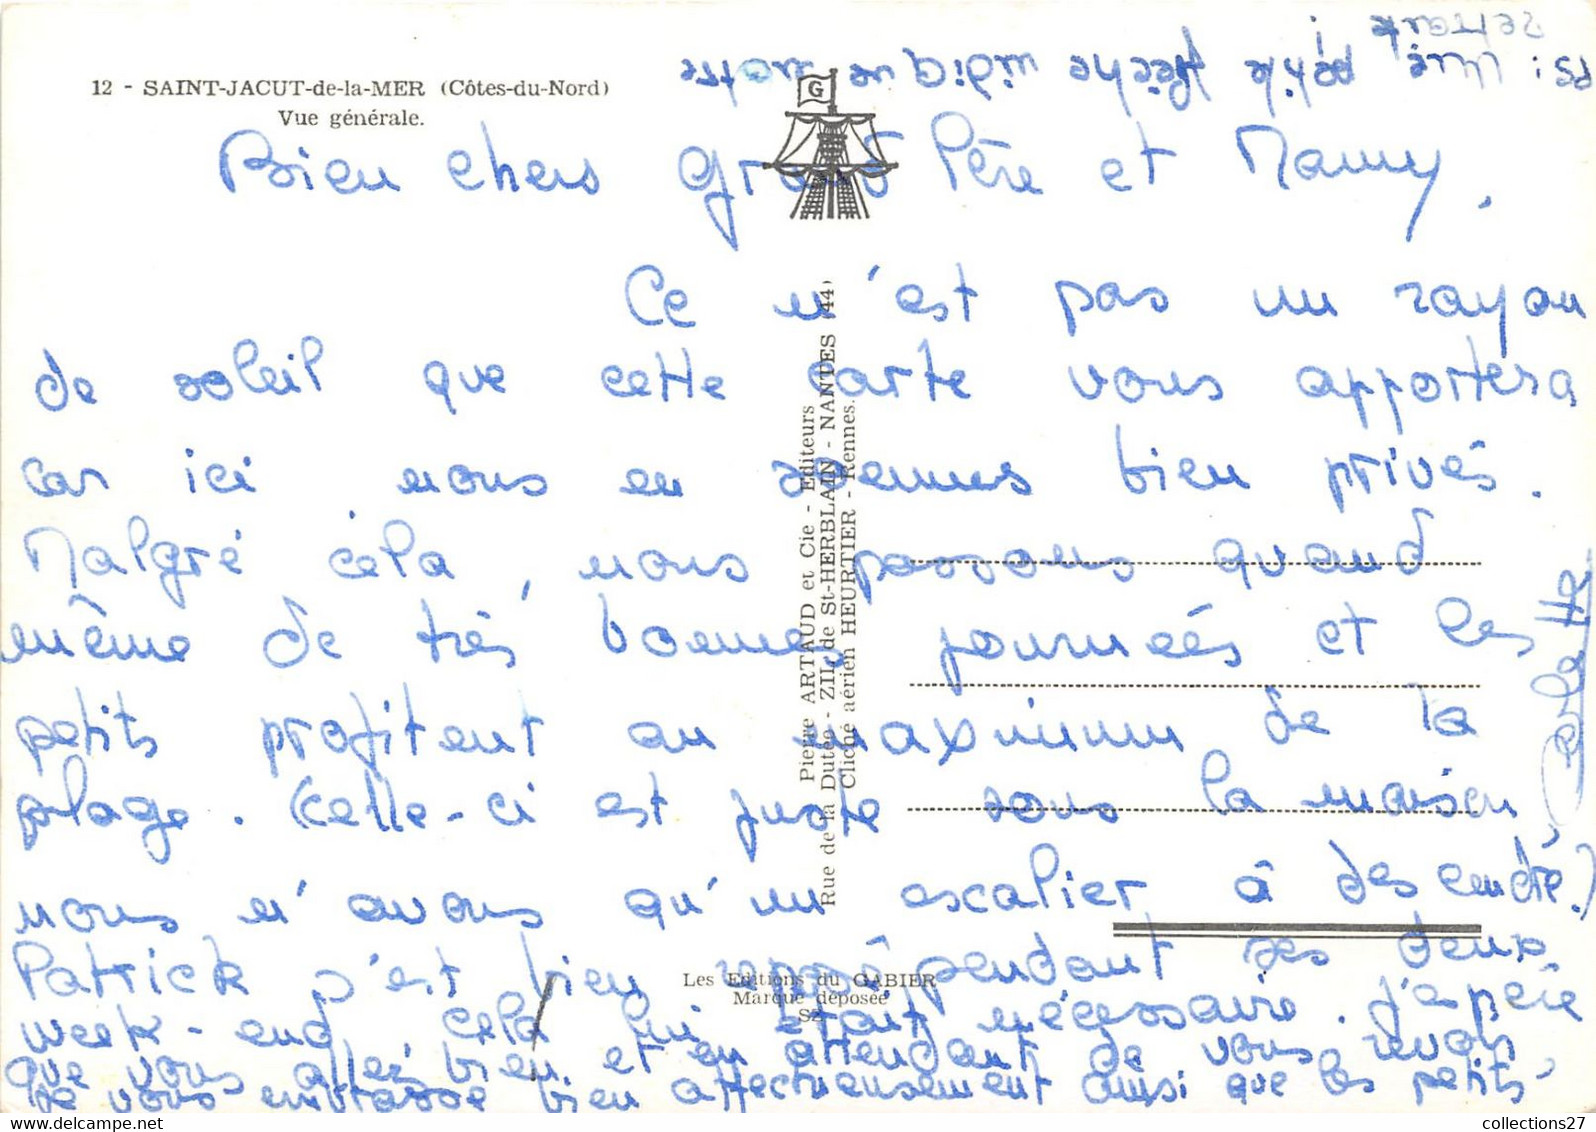 12 - SAINT-JACUT-de-la-MER (Côtes-du-Nord)
Vue générale.
G
Bien chers Grand Père et Mamy,
Ce n'est pas un rayon
de soleil que cette carte vous apportera
car ici nous en sommes bien privés.
Malgré cela, nous passons quand
même de très bonnes journées et les
petits profitent au maximum de la
plage. (Celle-ci est juste sous la maison,
nous n'avons qu'un escalier à descendre.)
Patrick s'est bien reposé pendant ses deux
week-end, cela lui était nécessaire. J'espère
que vous allez bien et en attendant de vous revoir
je vous embrasse bien affectueusement ainsi que les petits.
Colette
PS: petite
retraite
Pierre ARTAUD et Cie - Editeurs
Rue de la Dutée - ZIL de St-HERBLAIN - NANTES (44)
Cliché aérien HEURTIER - Rennes.
Les Editions du GABIER
Marque déposée
collections27